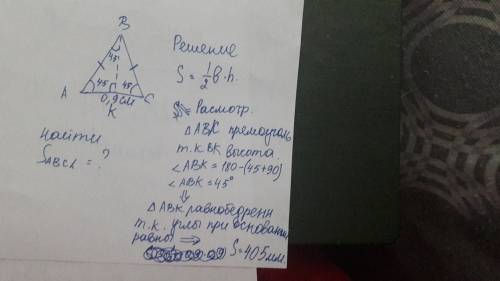 B
45
45
45
A
0,9см
C
K
найти
S ABC = ?
Решение
S = 1/2 b·h.
Расмотр.
△ABK прямоуголь
т.к. BK высота.
∠ABK = 180-(45+90)
∠ABK = 45°
⇓
△ABK равнобедренн
т.к. углы при основании
равны ⇒
S=405мм.